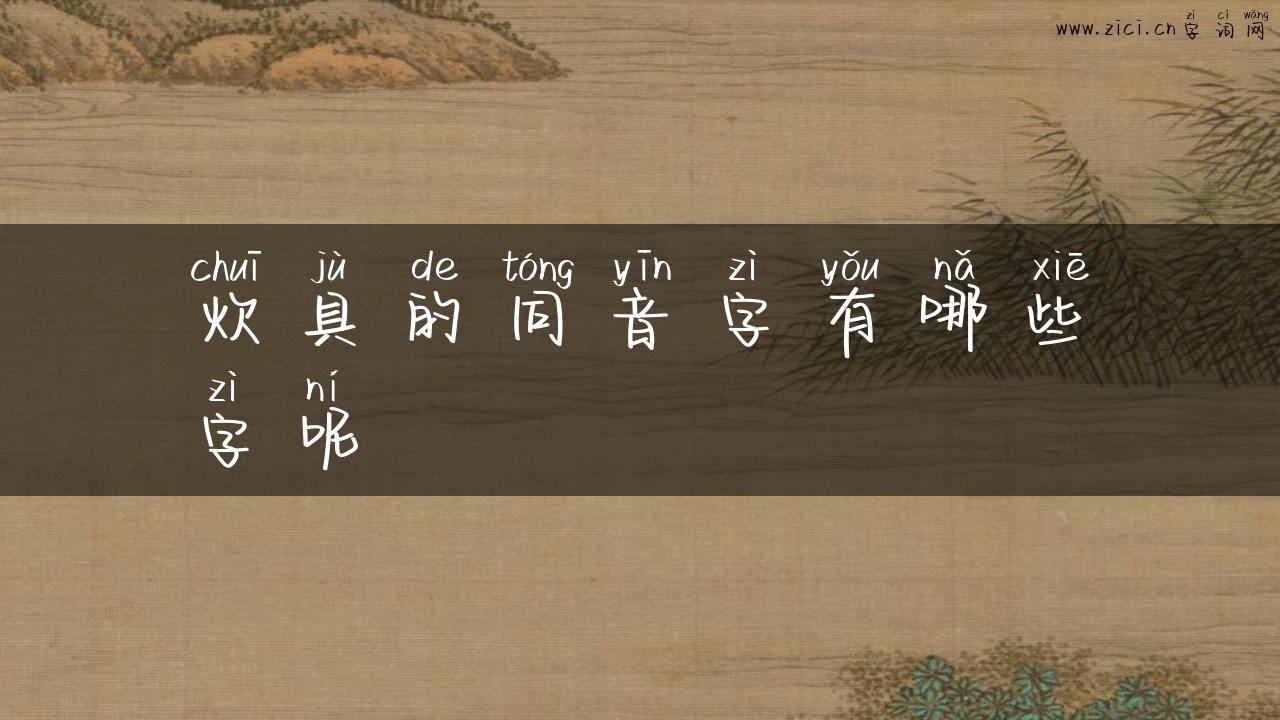 zì cí wǎng
www.zici.cn 字词网
chuī jù de tóng yīn zì yǒu nǎ xiē
炊具的同音字有哪些
zì ní
字呢